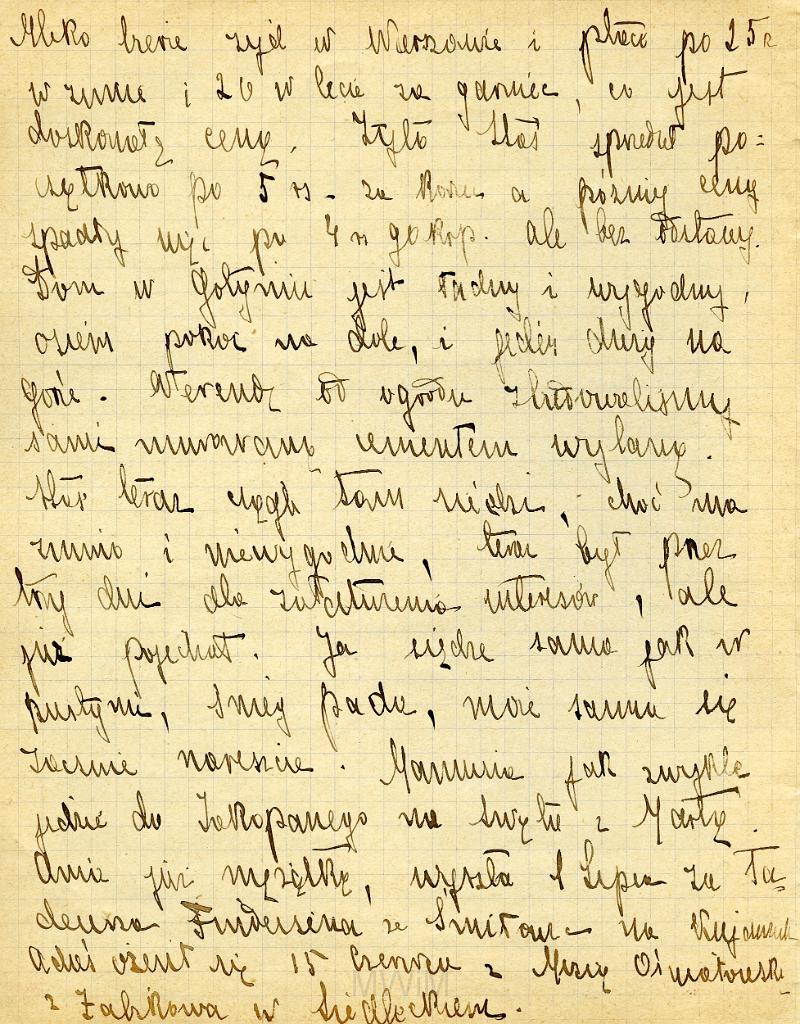 Mleko bierze żyd w Warszawie i płaci po 25 k
w zimie i 20 w lecie za garniec, co jest
doskonałą ceną. Żyto Staś sprzedał po=
czątkowo po 5 rs. za korzec a później ceny
spadły więc po 4 rs 90 kop. ale bez odstawy.
Dom w Gołyniu jest ładny i wygodny,
osiem pokoi na dole, i jeden duży na
górze. Werendę od ogrodu zbudowaliśmy
sami murowaną cementem wylaną.
Staś teraz ciągle tam siedzi, choć ma
zimno i niewygodnie, teraz był przez
trzy dni dla załatwienia interesów, ale
już pojechał. Ja siedzę sama jak w
pustyni, śnieg pada, może sanna się
zacznie nareszcie. Mamusia jak zwykle
jedzie do Zakopanego na święta z Martą.
Ania już mężatką, wyszła 1 Lipca za Ta-
deusza ze na Kujawach
Adaś ożenił się 15 Czerwca z Mizią
z Żabkowa w Siedleckiem.
MWM